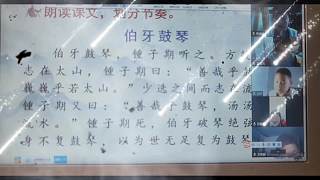 朗读课文，划分节奏。
伯牙鼓琴
伯牙鼓琴，锺子期听之。方
志在太山，锺子期曰：“善哉乎
巍巍乎若太山。”少选之间而志在流
锺子期又曰：“善哉乎鼓琴，汤汤
流水。”锺子期死，伯牙破琴绝弦
身不复鼓琴，以为世无足复为鼓琴